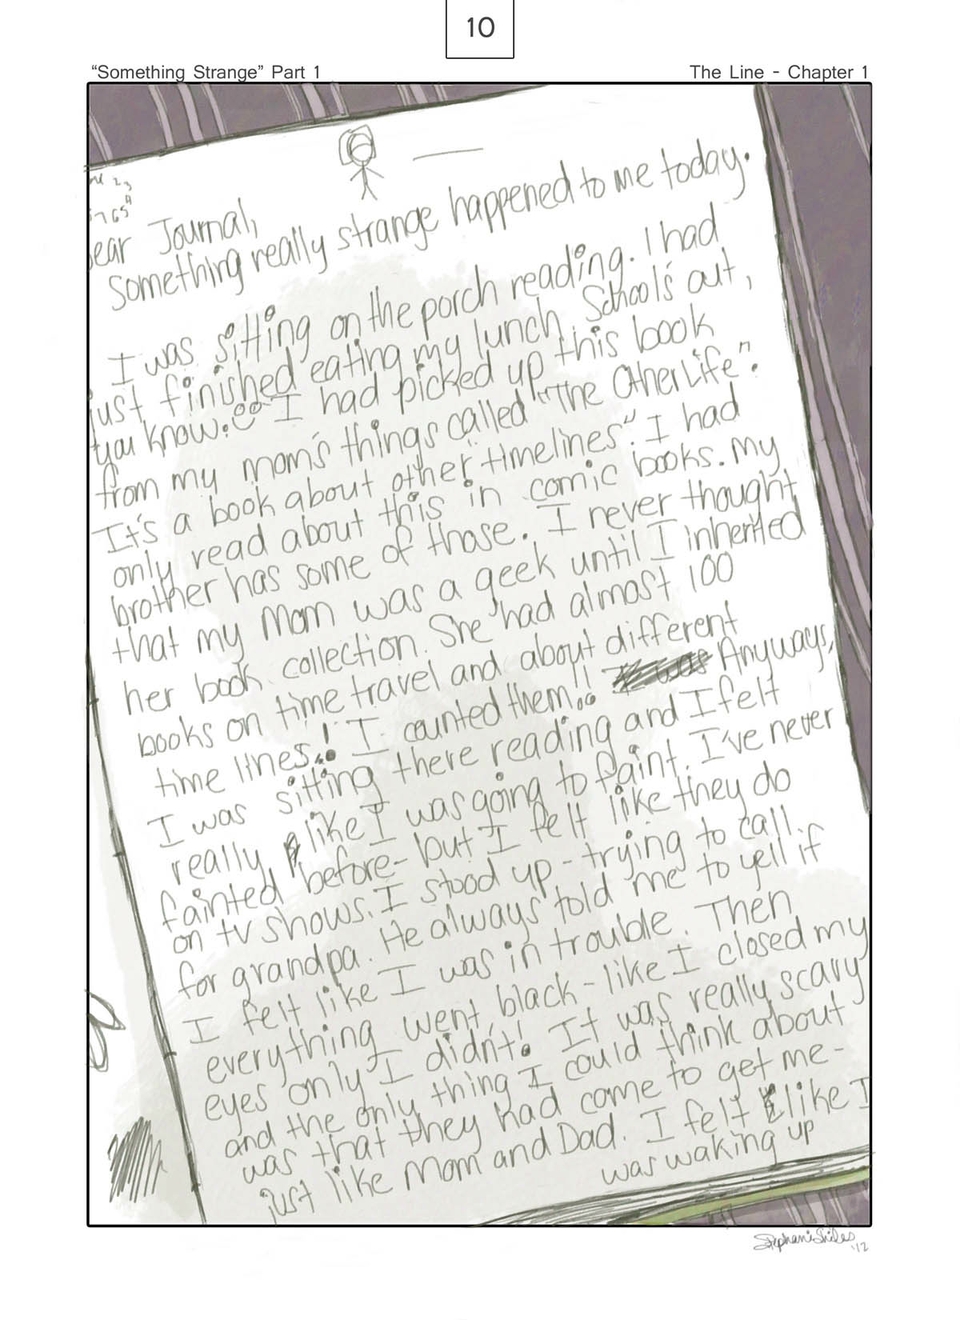 10
“Something Strange” Part 1
The Line - Chapter 1
ear Journal,
Something really strange happened to me today.
I was sitting on the porch reading. I had
just finished eating my lunch. School's out,
you know. I had picked up this book
from my mom's things called "The Other Life".
It's a book about other "timelines". I had
only read about this in comic books. My
brother has some of those. I never thought
that my Mom was a geek until I inherited
her book collection. She had almost 100
books on time travel and about different
time lines! I counted them!! Anyways,
I was sitting there reading and I felt
really like I was going to faint. I've never
fainted before- but I felt like they do
on tv shows. I stood up - trying to call
for grandpa. He always told me to yell if
I felt like I was in trouble. Then
everything went black - like I closed my
eyes only I didn't! It was really scary
and the only thing I could think about
was that they had come to get me -
just like Mom and Dad. I felt like I
was waking up
'12